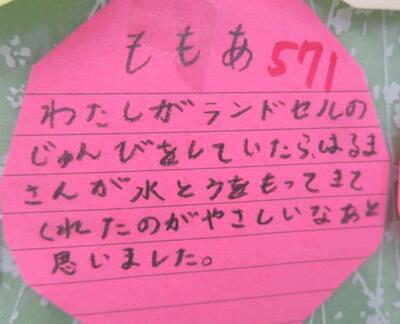 ももあ 571
わたしがランドセルの
じゅんびをしていたら、はるま
さんが水とうをもってきて
くれたのがやさしいなあと
思いました。